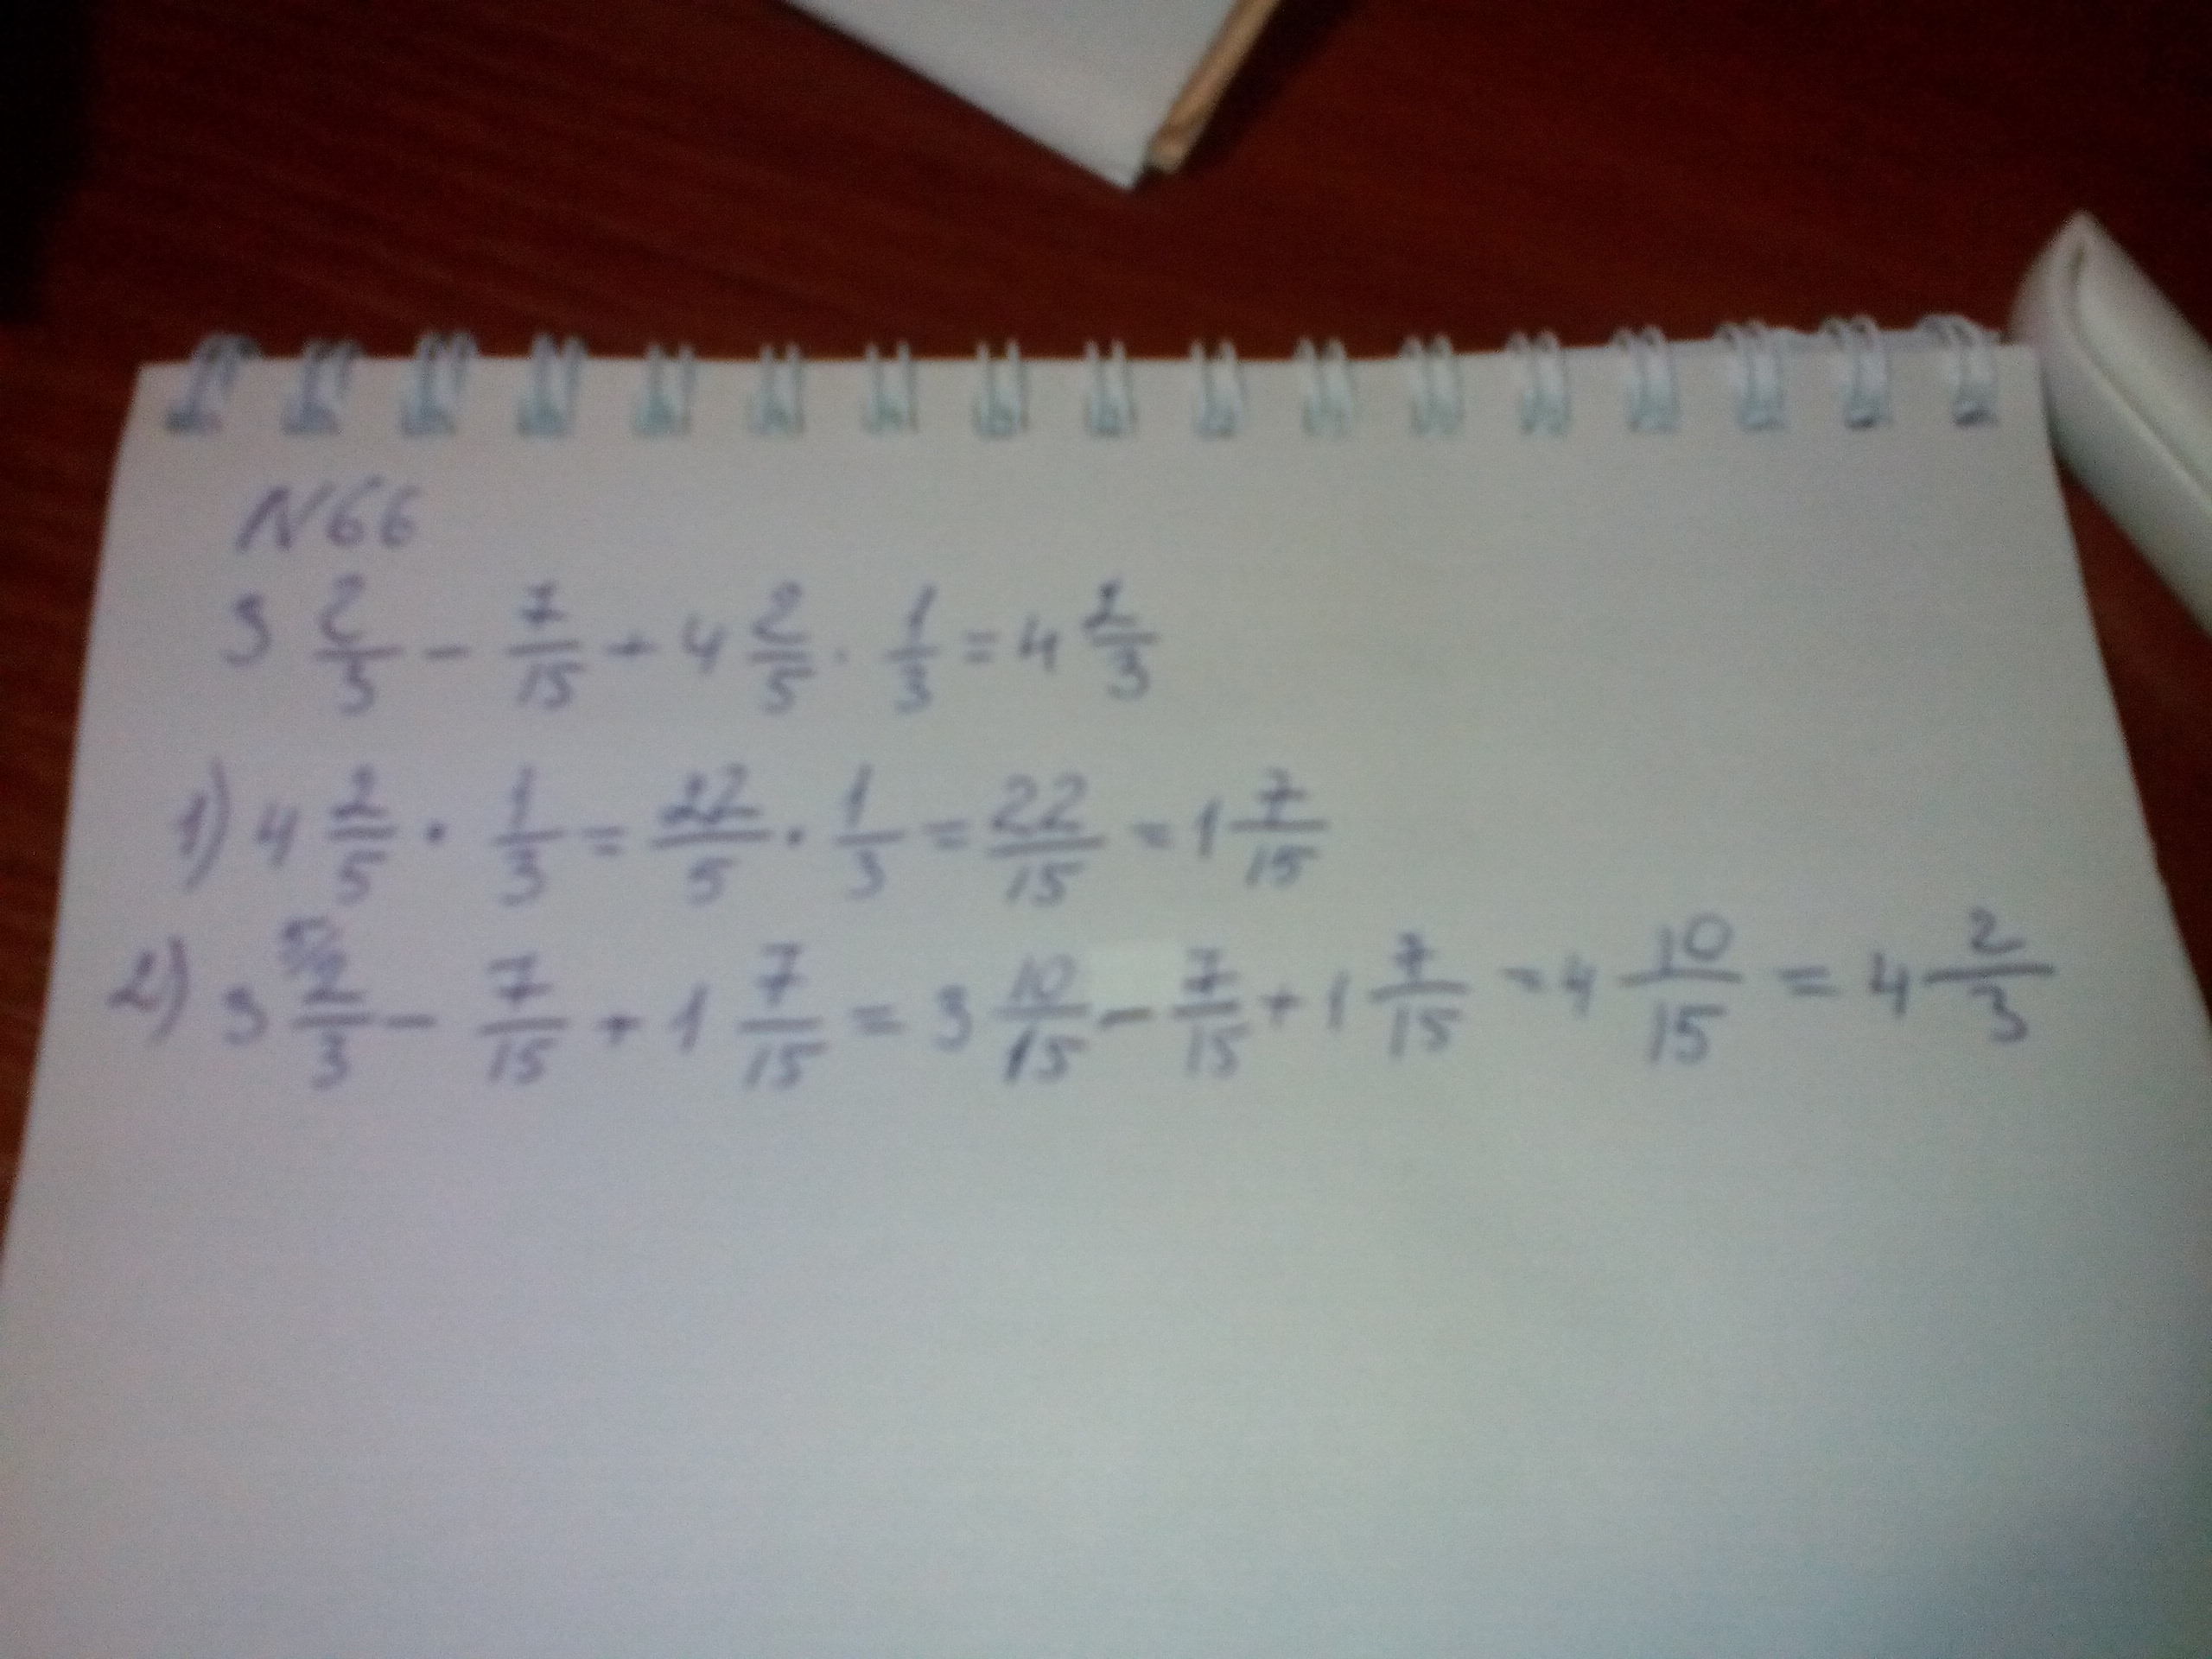 N66
3 2/3 - 7/15 + 4 2/5 · 1/3 = 4 2/3
1) 4 2/5 · 1/3 = 22/5 · 1/3 = 22/15 = 1 7/15
2) 3 5/ 2/3 - 7/15 + 1 7/15 = 3 10/15 - 7/15 + 1 7/15 = 4 10/15 = 4 2/3